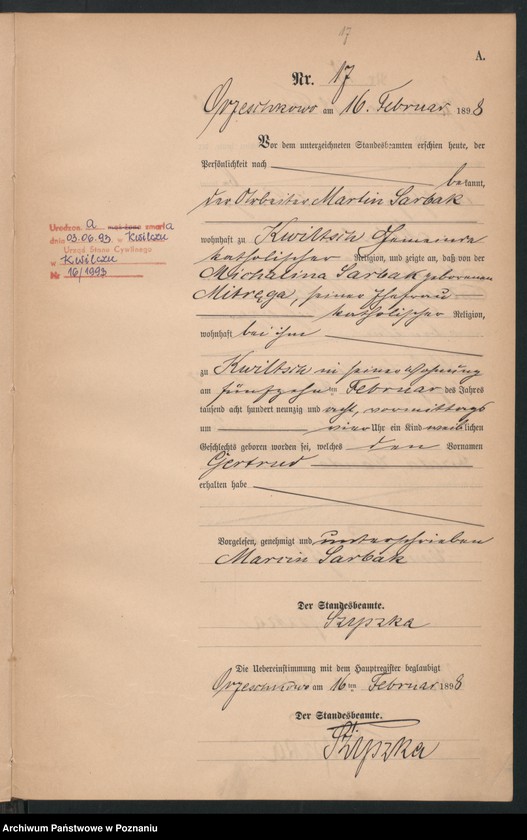 17
A.
Nr. 17
Orzeschkowo am 16. Februar 1898
Vor dem unterzeichneten Standesbeamten erschien heute, der
Persönlichkeit nach bekannt,
der Arbeiter Martin Sarbak
wohnhaft zu Kwiltsch Gemeinde
katholischer Religion, und zeigte an, daß von der
Michalina Sarbak geborenen
Mitręga, seiner Ehefrau
katholischer Religion,
wohnhaft bei ihm
zu Kwiltsch in seiner Wohnung
am fünfzehnten Februar des Jahres
tausend acht hundert neunzig und acht, vormittags
um vier Uhr ein Kind weiblichen
Geschlechts geboren worden sei, welches den Vornamen
Gertrud
erhalten habe
Vorgelesen, genehmigt und unterschrieben
Marcin Sarbak
Der Standesbeamte.
Szyszka
Die Uebereinstimmung mit dem Hauptregister beglaubigt
Orzeschkowo am 16ten Februar 1898
Der Standesbeamte.
Szyszka
Urodzon. A zmarła
dnia 03.06.93. w Kwilczu
Urząd Stanu Cywilnego
w Kwilczu
Nr 16/1993
Archiwum Państwowe w Poznaniu